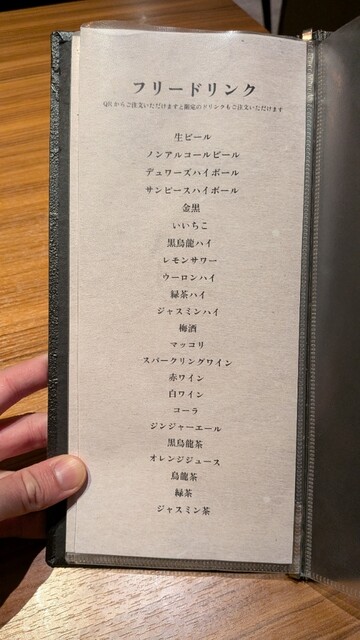 フリードリンク
からご注文いただけますと限定のドリンクもご注文いただけます
生ビール
ノンアルコールビール
デュワーズハイボール
サンピースハイボール
金黒
いいちこ
黒烏龍ハイ
レモンサワー
ウーロンハイ
緑茶ハイ
ジャスミンハイ
梅酒
マッコリ
スパークリングワイン
赤ワイン
白ワイン
コーラ
ジンジャーエール
黒烏龍茶
オレンジジュース
烏龍茶
緑茶
ジャスミン茶